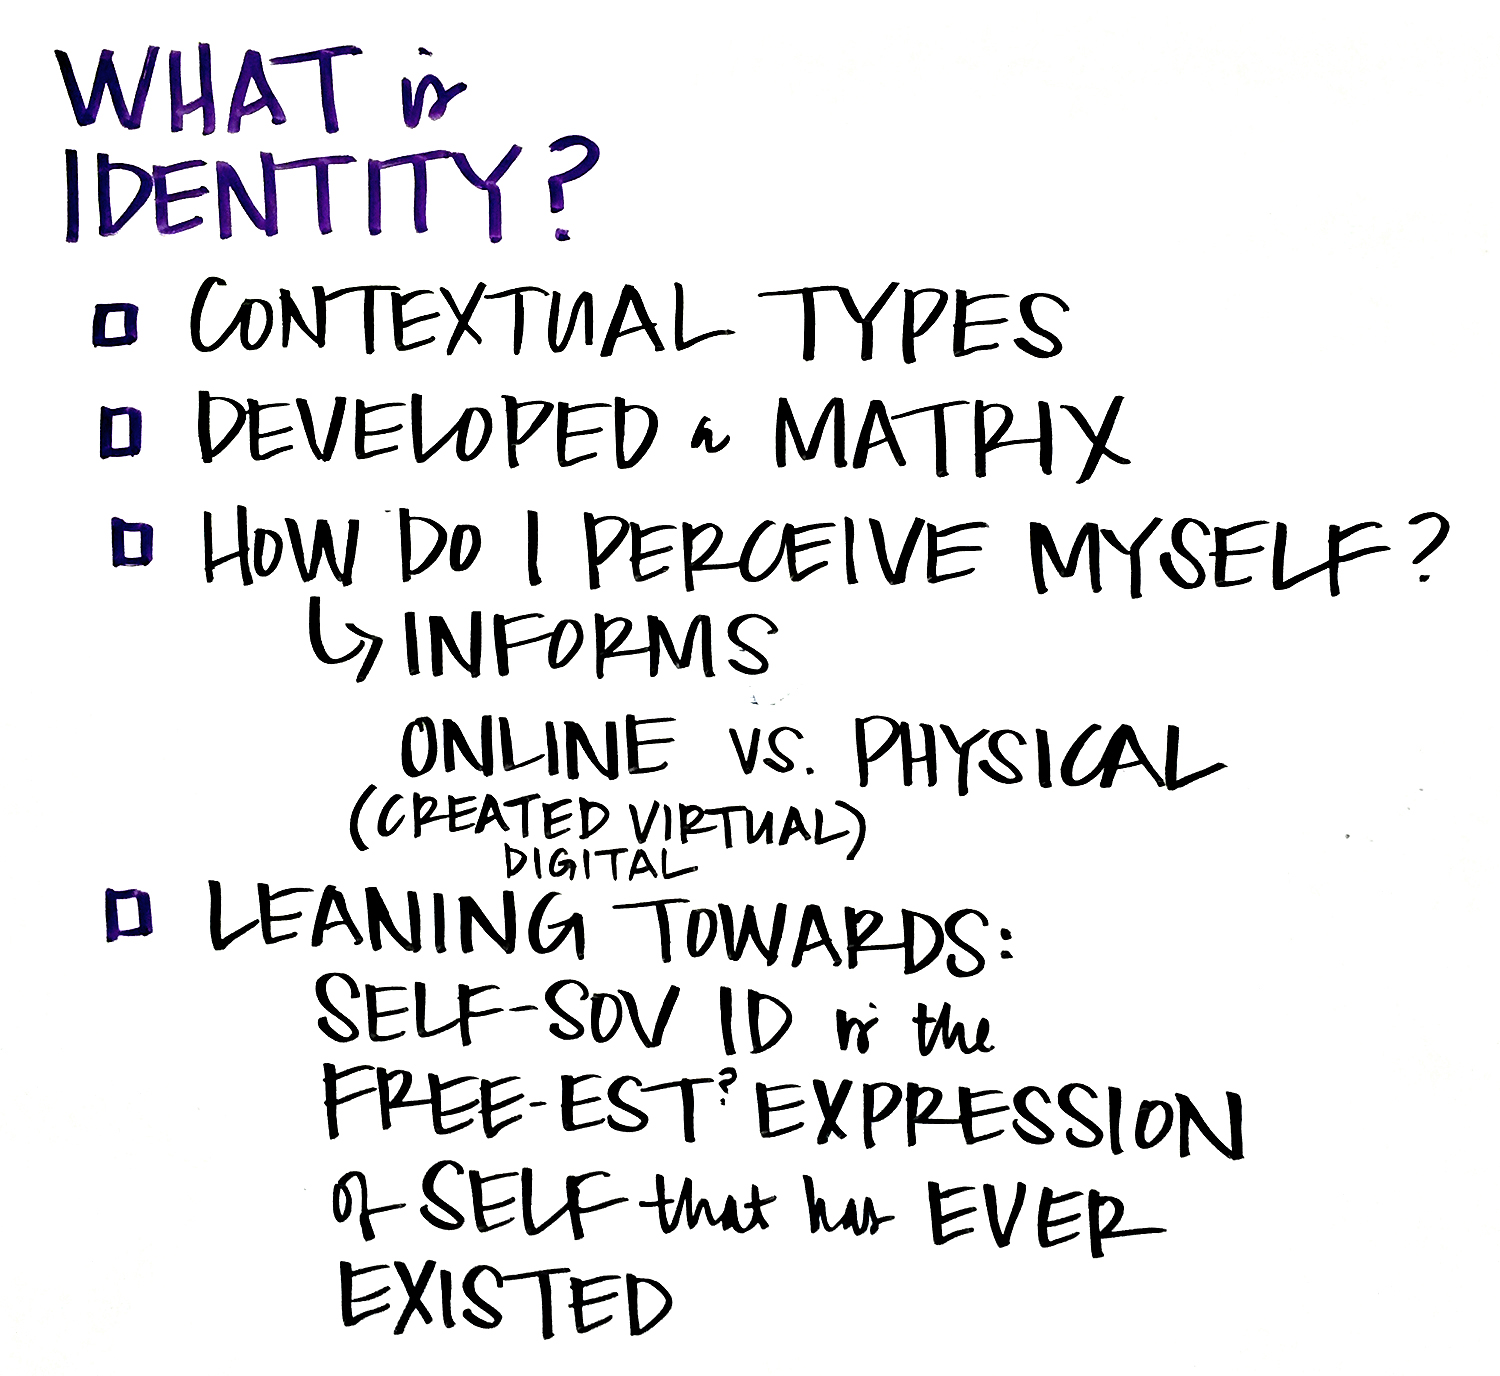 WHAT is
IDENTITY?
CONTEXTUAL TYPES
DEVELOPED a MATRIX
HOW DO I PERCEIVE MYSELF?
↳ INFORMS
ONLINE VS. PHYSICAL
(CREATED VIRTUAL)
DIGITAL
LEANING TOWARDS:
SELF-SOV ID is the
FREE-EST? EXPRESSION
of SELF that has EVER
EXISTED